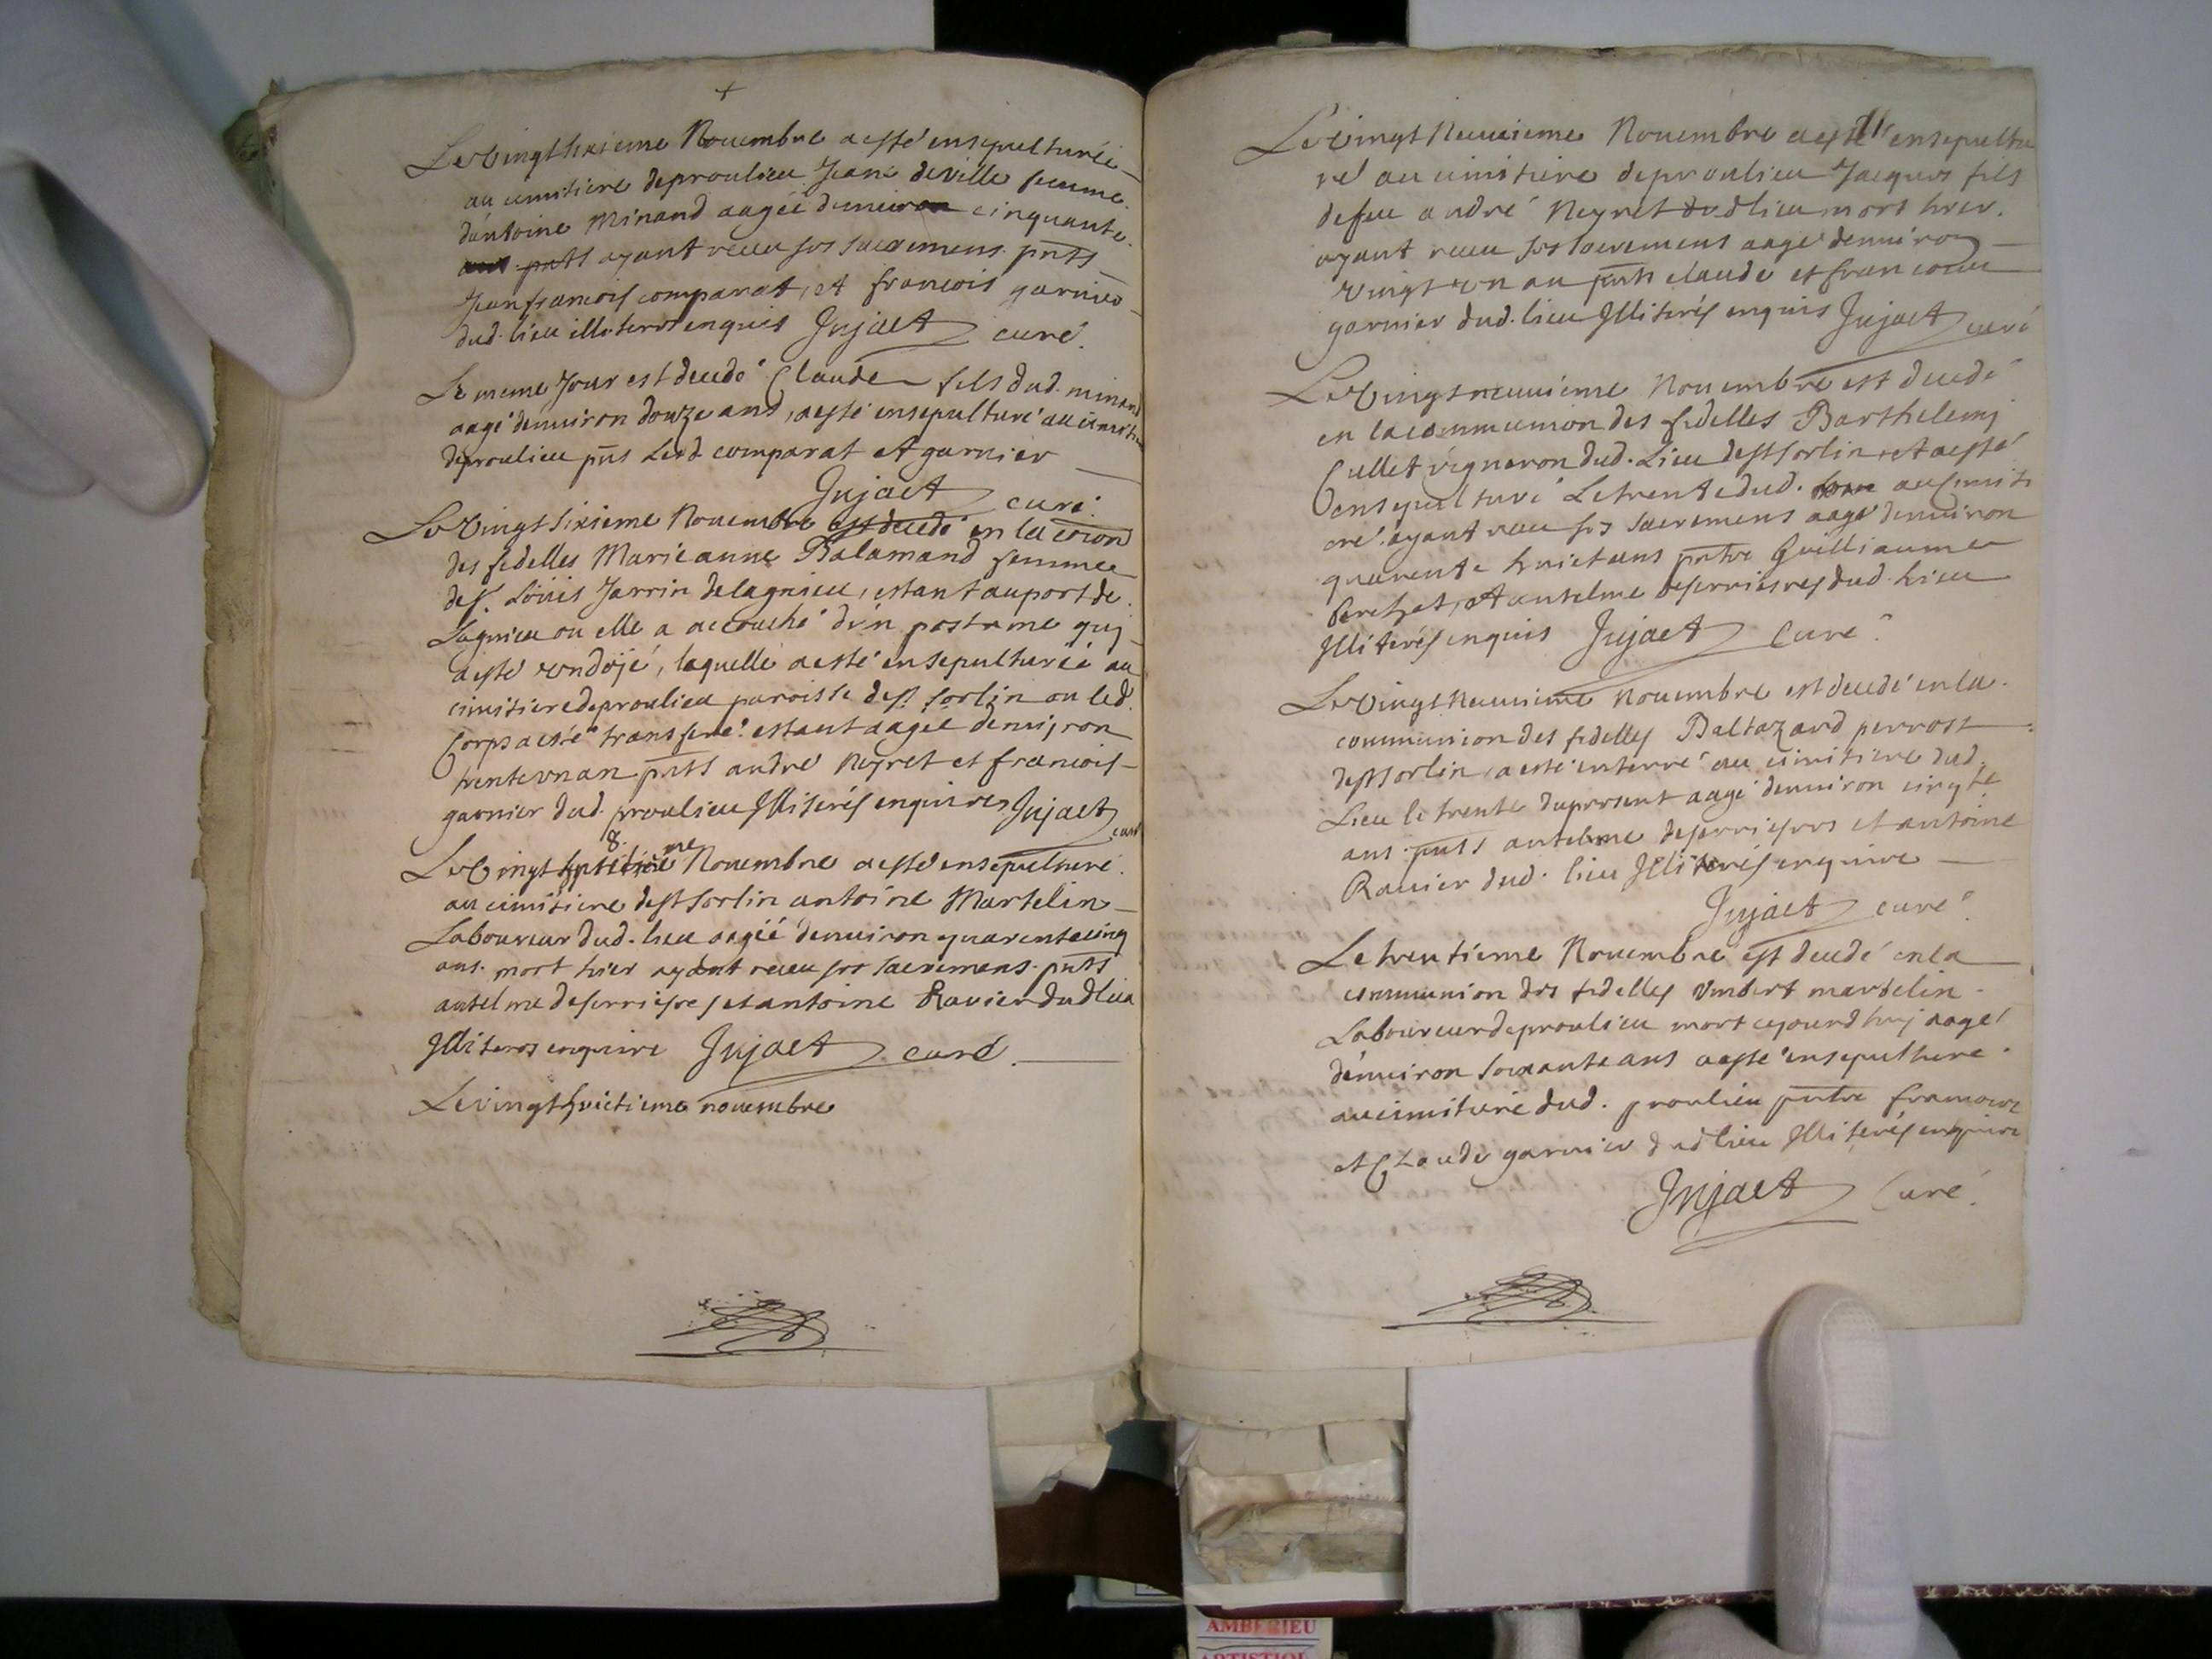 +
Le Vingt sixieme Nouembre a esté ensepulturéé
au cimitiere de proulieu Jeane deville femme
d'antoine Minand aagéé denuiron cinquante
ans pnts ayant receu ses sacremens pnts
Jean francois comparat, et francois garnier
dud. lieu illiteres enquis Jujaet curé.
Le meme Jour est decedé Claude fils dud. minand
aagé denuiron douze ans, a esté ensepulturé au cimitiere
de proulieu pns Lesd. comparat et garnier
Jujaet curé.
Le Vingt sixieme Nouembre est decedé en la coion
des fidelles Marie anne Balamand femme
de sr. Löüis Jarrin de lagnieu, estant au port de
Lagnieu ou elle a accouché d'un postume qui
a esté ondöjé, laquelle a esté ensepulturéé au
cimitiere de proulieu paroisse de st. sorlin ou led.
Corps a esté transferé. estant aagee denuiron
trente un an pnts andré Neyret et francois
garnier dud. proulieu Illiterés enquires Jujaet curé
8.
Le Vingt septieme Nouembre a esté ensepulturé
au cimitiere de st sorlin antoine Martelin
Laboureur dud. lieu aagéé denuiron quarente cinq
ans. mort hier ayant receu ses sacremens. pnts
antelme deserrieres et antoine Rauier dud lieu
Illiteres enquire Jujaet curé.
Le vingt huictieme nouembre
Le Vingt Neuuieme Nouembre a esté ensepultu
ré au cimitiere de proulieu Jacques fils
de feu andré Neyret dud lieu mort hier.
ayant receu ses sacremens aagé denuiron
vingt un an pnts claude et francois
garnier dud. lieu Illiterés enquis Jujaet curé
Le Vingt neuuieme Nouembre est decedé
en la communion des fidelles Barthelemj
Cullet vigneron dud. Lieu de st sorlin et a esté
ensepulturé Le trente dud. au Cimiti
ere. ayant receu ses sacremens aagé denuiron
quarente huict ans pntre Guilliaume
et antelme deserrieres dud. lieu
Illiterés enquis Jujaet Curé.
Le Vingt Neuuieme Nouembre est decedé en la
communion des fidelles Baltazard perrost
de st sorlin, a esté enterré au cimitiere dud.
Lieu le trente du present aagé denuiron cinqte
ans. pnts antelme deserrieres et antoine
Rauier dud. lieu Illiterés enquire
Jujaet curé.
Le trentieme Nouembre est decedé en la
communion des fidelles Umbert martelin
Laboureur de proulieu mort cejourd huj aagé
denuiron soixante ans a esté ensepulturé
au cimitiere dud. proulieu pntre francois
et Claude garnier dud lieu Illiterés enquire
Jujaet Curé.
AMBERIEU